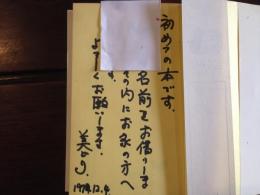 初めての本です。
名前をお借りしま
の内にお永の方へ
す。
よろしくお願いします。
美よ
1974.12.4